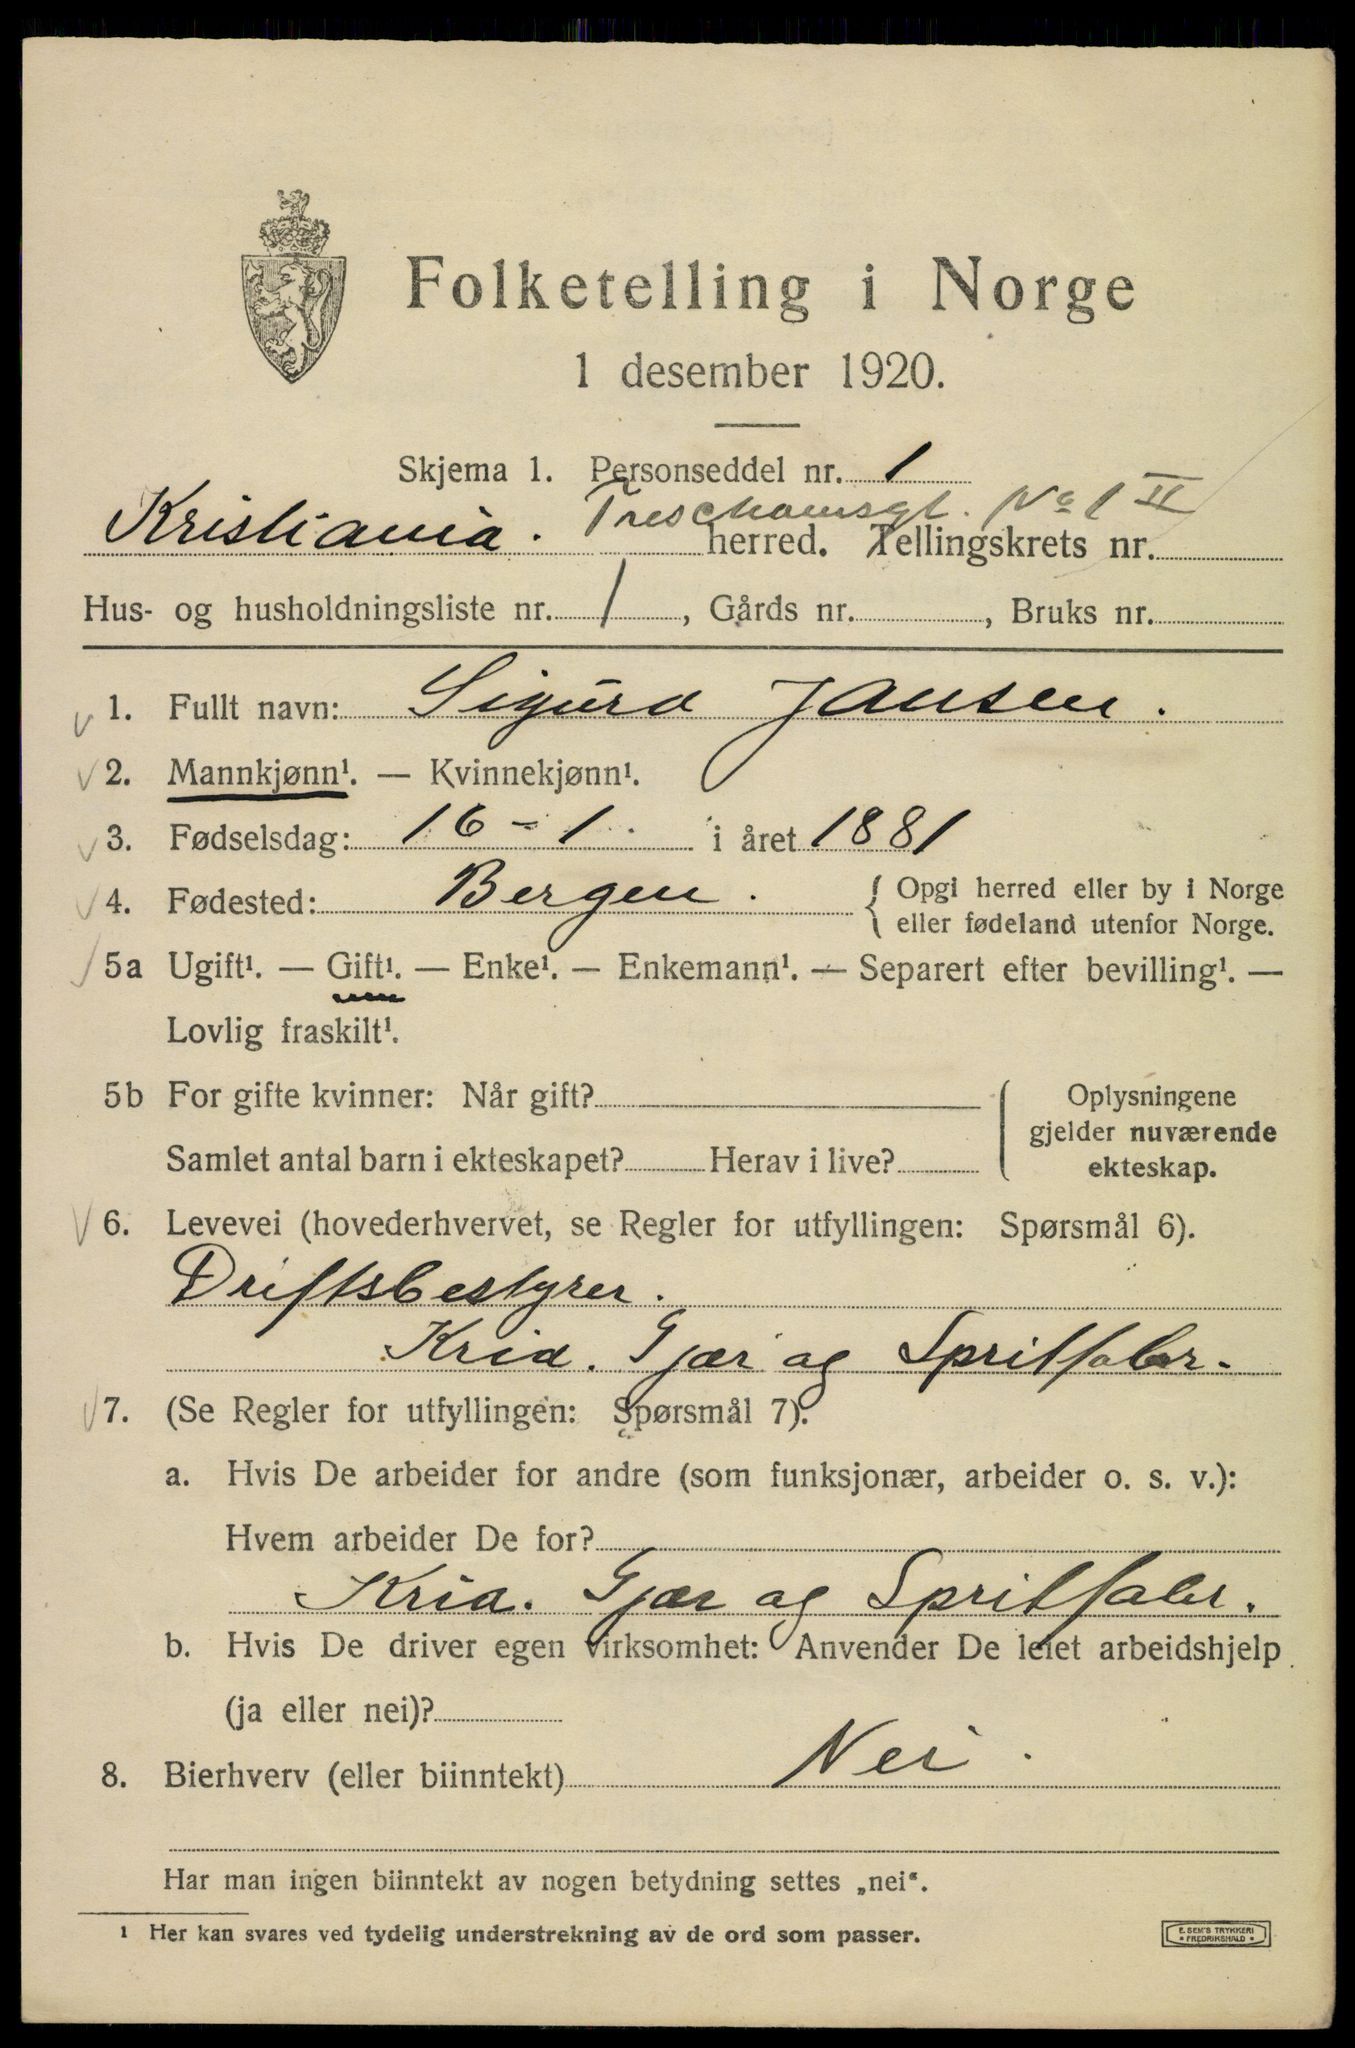 Folketelling i Norge
1 desember 1920.
Skjema 1. Personseddel nr. 1
Treschowsgt. No 1 II
Kristiania. herred. Tellingskrets nr.
Hus- og husholdningsliste nr. 1, Gårds nr. , Bruks nr.
1. Fullt navn: Sigurd Jansen.
2. Mannkjønn¹. — Kvinnekjønn¹.
3. Fødselsdag: 16 - 1. i året 1881
4. Fødested: Bergen. { Opgi herred eller by i Norge
eller fødeland utenfor Norge.
5a Ugift¹. — Gift¹. — Enke¹. — Enkemann¹. — Separert efter bevilling¹. —
Lovlig fraskilt¹.
5b For gifte kvinner: Når gift?
Samlet antal barn i ekteskapet? Herav i live?
Oplysningene
gjelder nuværende
ekteskap.
6. Levevei (hovederhvervet, se Regler for utfyllingen: Spørsmål 6).
Driftsbestyrer.
Kria. Gjær og Spritfabr.
7. (Se Regler for utfyllingen: Spørsmål 7).
a. Hvis De arbeider for andre (som funksjonær, arbeider o. s. v.):
Hvem arbeider De for?
Kria. Gjær og Spritfabr.
b. Hvis De driver egen virksomhet: Anvender De leiet arbeidshjelp
(ja eller nei)?
8. Bierhverv (eller biinntekt) Nei.
Har man ingen biinntekt av nogen betydning settes „nei“.
1 Her kan svares ved tydelig understrekning av de ord som passer.
E. SEM'S TRYKKERI
* FREDRIKSHALD *